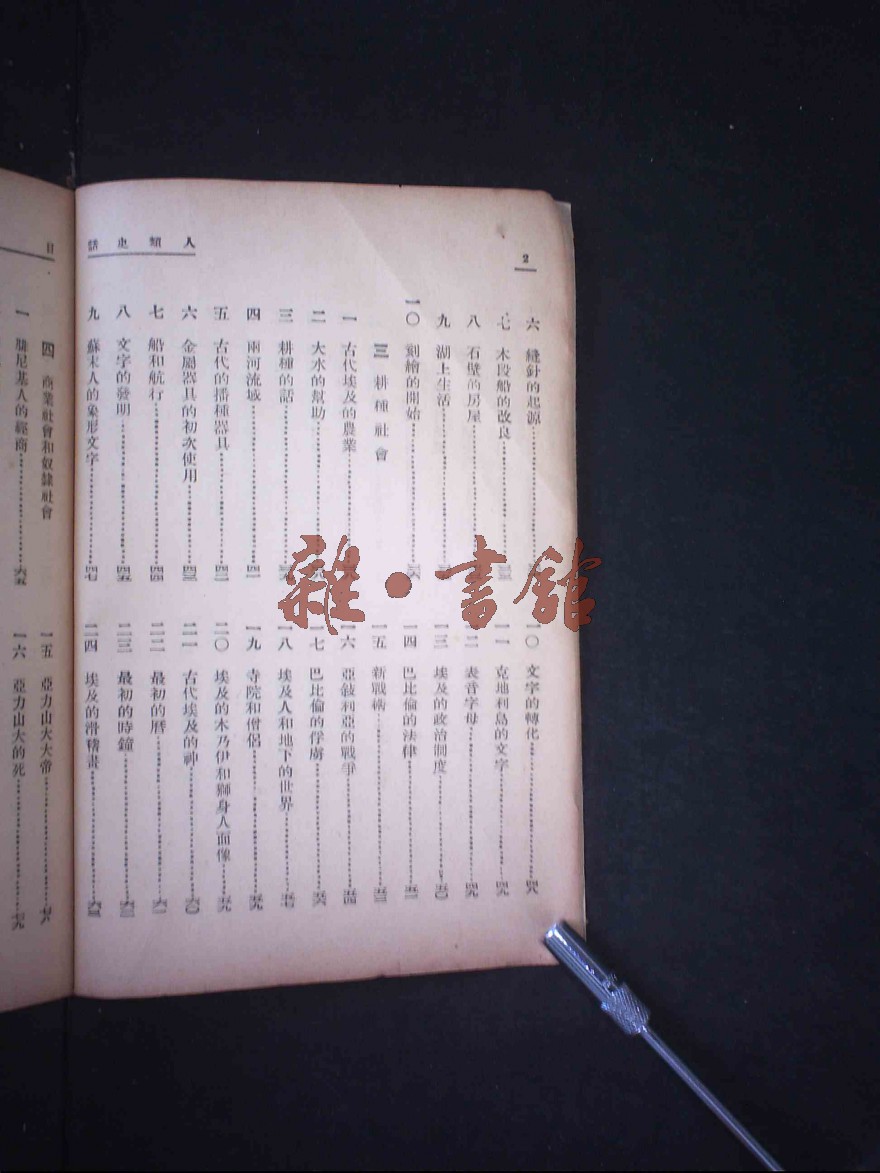 人類史話
2
六 縫針的起源
七 木段船的改良
八 石壁的房屋
九 湖上生活
一〇 刻繪的開始
三 耕種社會
一 古代埃及的農業
二 大水的幫助
三 耕種的話
四 兩河流域 四一
五 古代的播種器具 四二
六 金屬器具的初次使用 四三
七 船和航行 四四
八 文字的發明 四五
九 蘇末人的象形文字 四七
一〇 文字的轉化 四八
一一 克地利島的文字 四九
一二 表音字母 四九
一三 埃及的政治制度 五〇
一四 巴比倫的法律 五一
一五 新戰術 五三
一六 亞敍利亞的戰爭 五四
一七 巴比倫的俘虜 五六
一八 埃及人和地下的世界 五七
一九 寺院和僧侶 五九
二〇 埃及的木乃伊和獅身人面像 五九
二一 古代埃及的神 六〇
二二 最初的曆 六一
二三 最初的時鐘 六二
二四 埃及的滑稽畫 六三
目
四 商業社會和奴隸社會
一 腓尼基人的經商 六五
一五 亞力山大大帝 七八
一六 亞力山大的死 七九
雜·書館